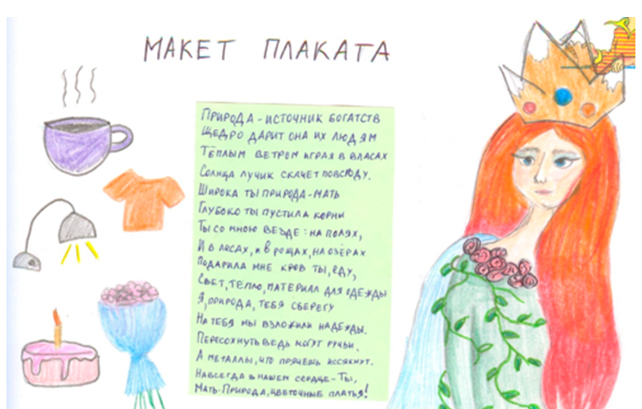 МАКЕТ ПЛАКАТА
ПРИРОДА - ИСТОЧНИК БОГАТСТВ
ЩЕДРО ДАРИТ ОНА ИХ ЛЮДЯМ
ТЁПЛЫМ ВЕТРОМ ИГРАЯ В ВЛАСАХ
СОЛНЦА ЛУЧИК СКАЧЕТ ПОВСЮДУ.
ШИРОКА ТЫ ПРИРОДА - МАТЬ
ГЛУБОКО ТЫ ПУСТИЛА КОРНИ
ТЫ СО МНОЮ ВЕЗДЕ: НА ПОЛЯХ,
И В ЛЕСАХ, И В РОЩАХ, НА ОЗЁРАХ
ПОДАРИЛА МНЕ КРОВ ТЫ, ЕДУ,
СВЕТ, ТЕПЛО, МАТЕРИАЛ ДЛЯ ОДЕЖДЫ
Я, ПРИРОДА, ТЕБЯ СБЕРЕГУ
НА ТЕБЯ МЫ ВЗЛОЖИЛИ НАДЕЖДЫ.
ПЕРЕСОХНУТЬ ВЕДЬ МОГУТ РУЧЬИ.
А МЕТАЛЛЫ, ЧТО ПРЯЧЕШЬ ИССЯКНУТ.
НАВСЕГДА В НАШЕМ СЕРДЦЕ - ТЫ,
МАТЬ-ПРИРОДА, ЦВЕТОЧНЫЕ ПЛАТЬЯ!